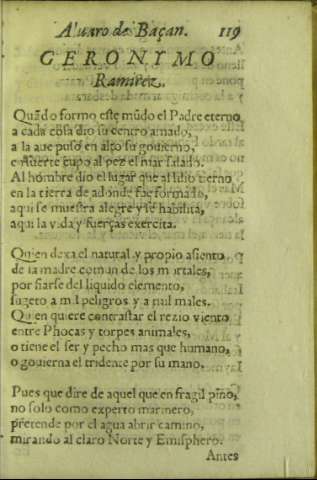 Aluaro de Baçan. 119
GERONYMO
Ramirez.
Quãdo formo este mũdo el Padre eterno
a cada cosa dio su centro amado,
a la aue puso en alto su gouierno,
cupo al pez el mar salado.
Al hombre dio el lugar que al lilio tierno
en la tierra de adonde fue formado,
aqui se muestra alegre y se habilita,
aqui la vida y fuerças exercita.
Quien dexa el natural y propio asiento
de la madre comun de los mortales,
por fiarse del liquido elemento,
sugeto a mil peligros y a mil males.
Quien quiere contrastar el rezio viento
entre Phocas y torpes animales,
o tiene el ser y pecho mas que humano,
o gouierna el tridente por su mano.
Pues que dire de aquel que en fragil pino,
no solo como experto marinero,
pretende por el agua abrir camino,
mirando al claro Norte y Emisphero.
Antes